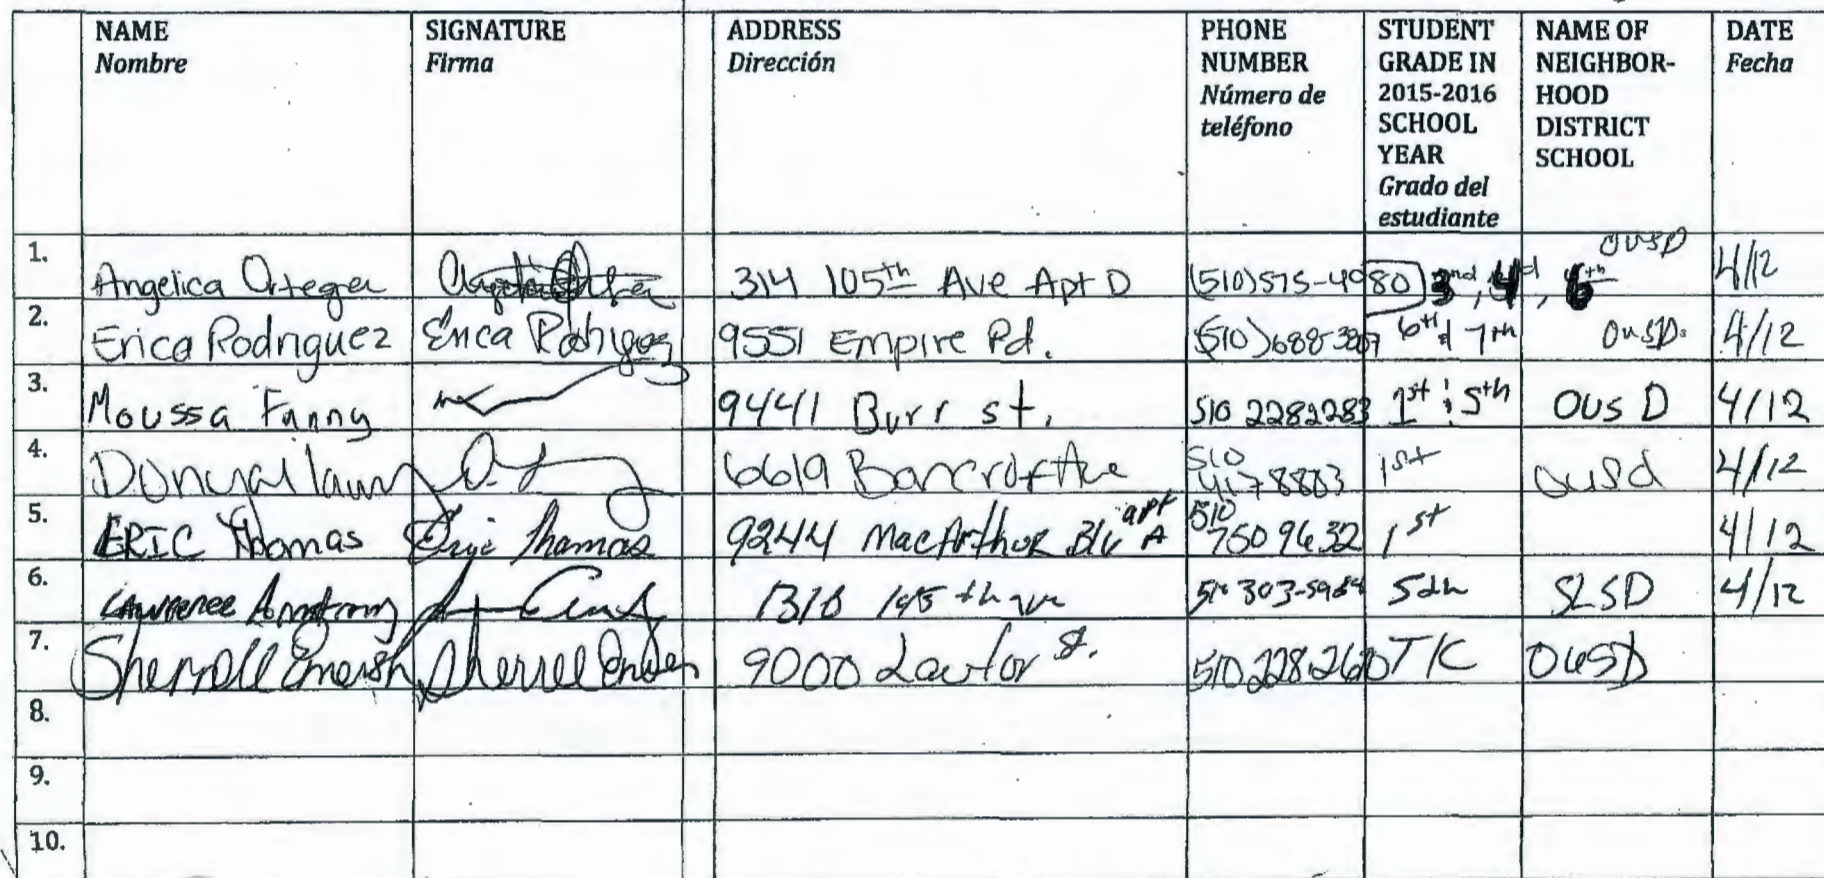 NAME
Nombre
SIGNATURE
Firma
ADDRESS
Dirección
PHONE
NUMBER
Número de
teléfono
STUDENT
GRADE IN
2015-2016
SCHOOL
YEAR
Grado del
estudiante
NAME OF
NEIGHBOR-
HOOD
DISTRICT
SCHOOL
DATE
Fecha
1. Angelica Ortega 314 105th Ave Apt D (510)575-4980 3rd, 4th, 6th OUSD 4/12
2. Erica Rodriguez Erica Rodriguez 9551 Empire Rd. (510)688-3807 6th & 7th OUSD. 4/12
3. Moussa Fanny 9441 Burr st. 510 2282283 1st & 5th OUSD 4/12
4. 6619 Bancroft Ave 510 4178883 1st ousd 4/12
5. ERIC Thomas Eric Thomas 9244 MacArthur Blv apt A 510 7509632 1st 4/12
6. Lawrence Armstrong 5th SLSD 4/12
7. Sherrell 9000 St. 510 228 2620 TK OUSD
8.
9.
10.